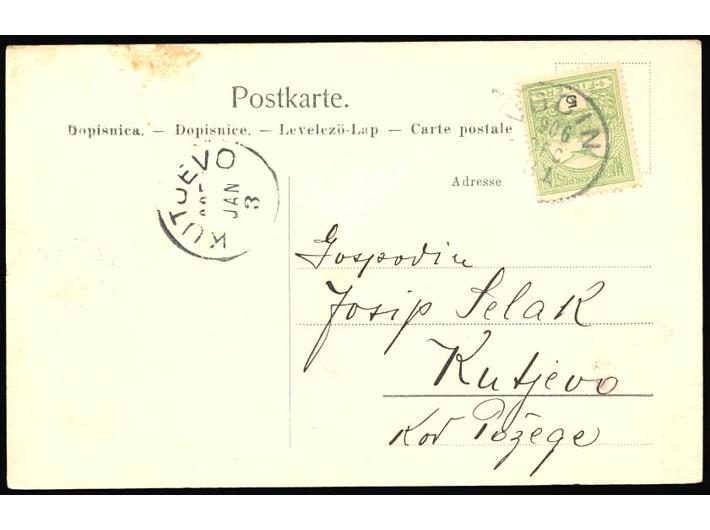 Postkarte.
Dopisnica. — Dopisnice. — Levelező-Lap — Carte postale
Adresse
5
FILLÉR
906
KUTJEVO
JAN
3
Gospodin
Josip Selak
Kutjevo
Kod Požege